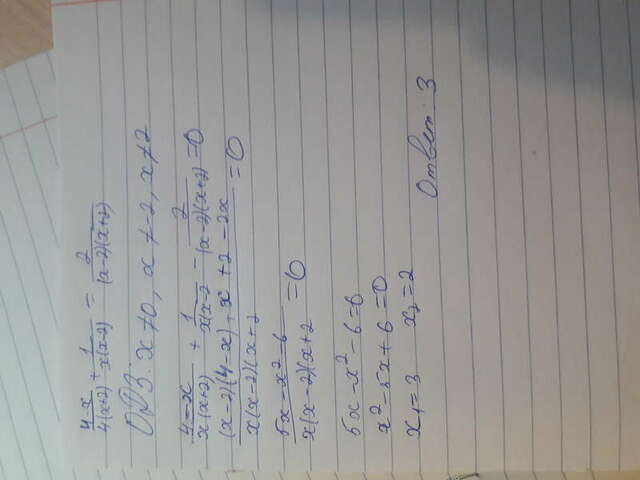 4-x/4(x+2) + 1/x(x-2) = 2/(x-2)(x+2)
ОДЗ: x ≠ 0, x ≠ -2, x ≠ 2
4-x/x(x+2) + 1/x(x-2 - 2/(x-2)(x+2) = 0
(x-2)(4-x) + x + 2 - 2x/x(x-2)(x+2 = 0
5x-x²-6/x(x-2)(x+2 = 0
5x-x²-6=6
x²-5x+6=0
x₁=3 x₂=2
Ответ: 3